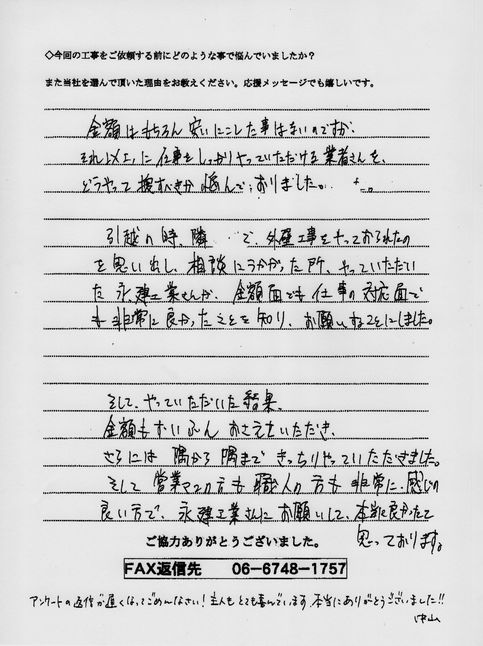 ◇今回の工事をご依頼する前にどのような事で悩んでいましたか？
また当社を選んで頂いた理由をお教えください。応援メッセージでも嬉しいです。
金額はもちろん安いにこした事はないのですが、
それ以上に仕事をしっかりやっていただける業者さんを、
どうやって捜すべきか悩んでおりました。
引越の時、隣で、外壁工事をやっておられたの
を思い出し、相談にうかがった所、やっていただい
た永建工業さんが、金額面でも仕事の対応面で
も非常に良かったことを知り、お願いすることにしました。
そして、やっていただいた結果、
金額もずいぶんおさえていただき、
さらには隅から隅まできっちりやっていただきました。
そして営業マンの方も職人の方も非常に感じの
良い方で、永建工業さんにお願いして、本当に良かったと
思っております。
ご協力ありがとうございました。
FAX返信先 06-6748-1757
アンケートの返信が遅くなってごめんなさい！主人もとても喜んでいます。本当にありがとうございました!!
中山